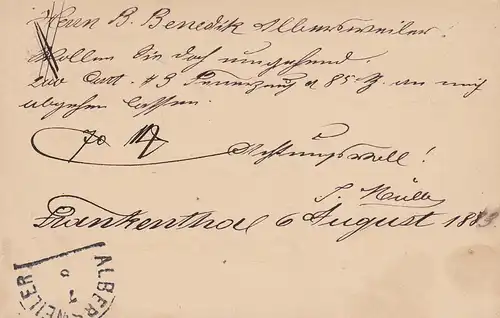 Herrn B. Benedik Albersweiler!
Wollen Sie doch umgehend
200 Cart. #3 Feuerzeug a 85 Pf. an mich
abgehen lassen.
Achtungsvoll!
J Müller
Frankenthal 6 August 188
ALBERSWEILER